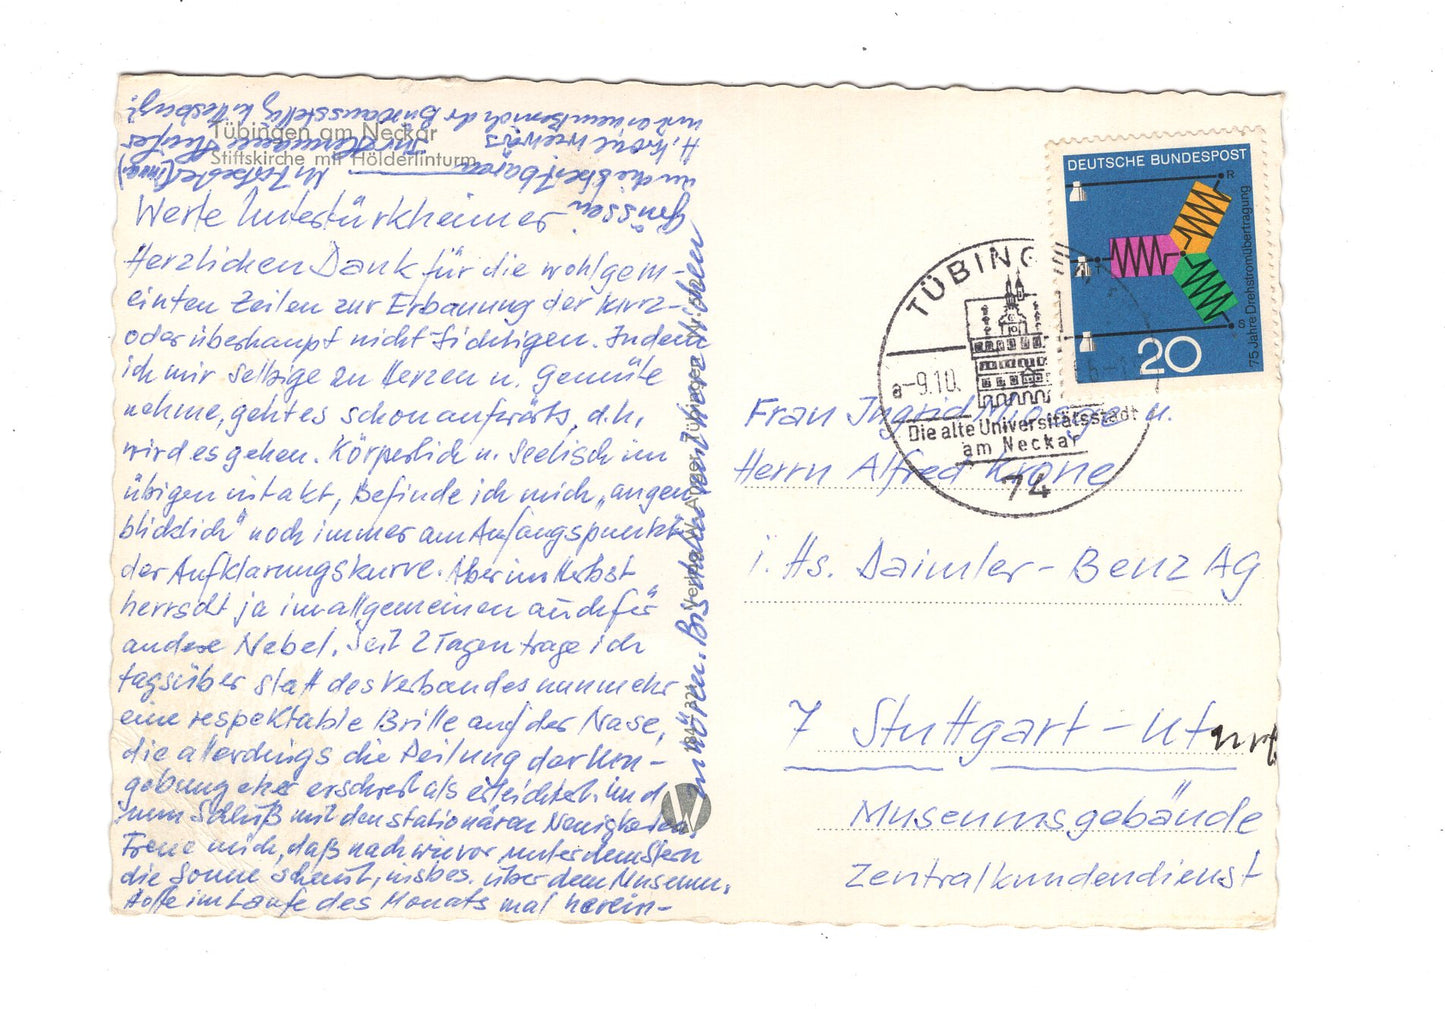 Tübingen am Neckar
Stiftskirche mit Hölderlinturm
Werte Untertürkheimer
Herzlichen Dank für die wohlgem-
einten Zeilen zur Erbauung der kurz-
oder überhaupt nicht Sichtigen. Indem
ich mir selbige zu Herzen u. Gemüte
nehme, geht es schon aufwärts, d.h.
wird es gehen. Körperlich u. Seelisch im
übigen intakt, befinde ich mich „augen
blicklich“ noch immer am Anfangspunkt
der Aufklärungskurve. Aber im Herbst
herrscht ja im allgemeinen auch für
andere Nebel. Seit 2 Tagen trage ich
tagsüber statt des Verbandes nunmehr
eine respektable Brille auf der Nase,
die allerdings die Peilung der Um-
gebung eher erschwert als erleichtert. Und
zum Schluß mit den stationären Neuigkeiten
Freue mich, daß nach wie vor unter dem Stern
die Sonne scheint, insbes. über dem Museum.
Hoffe im Laufe des Monats mal herein-
zuhören. Bis dahin mit herzlichen
Grüssen
Ihr Hermann
Verlag W. Apper, Tübingen
W
DEUTSCHE BUNDESPOST
R
T
S
75 Jahre Drehstromübertragung
20
TÜBING
a-9.10.
6-1
Die alte Universitätsstadt
am Neckar
74
Frau Ingrid u.
Herrn Alfred Krone
i. Hs. Daimler-Benz AG
7 Stuttgart-Utürt
Museumsgebäude
Zentralkundendienst